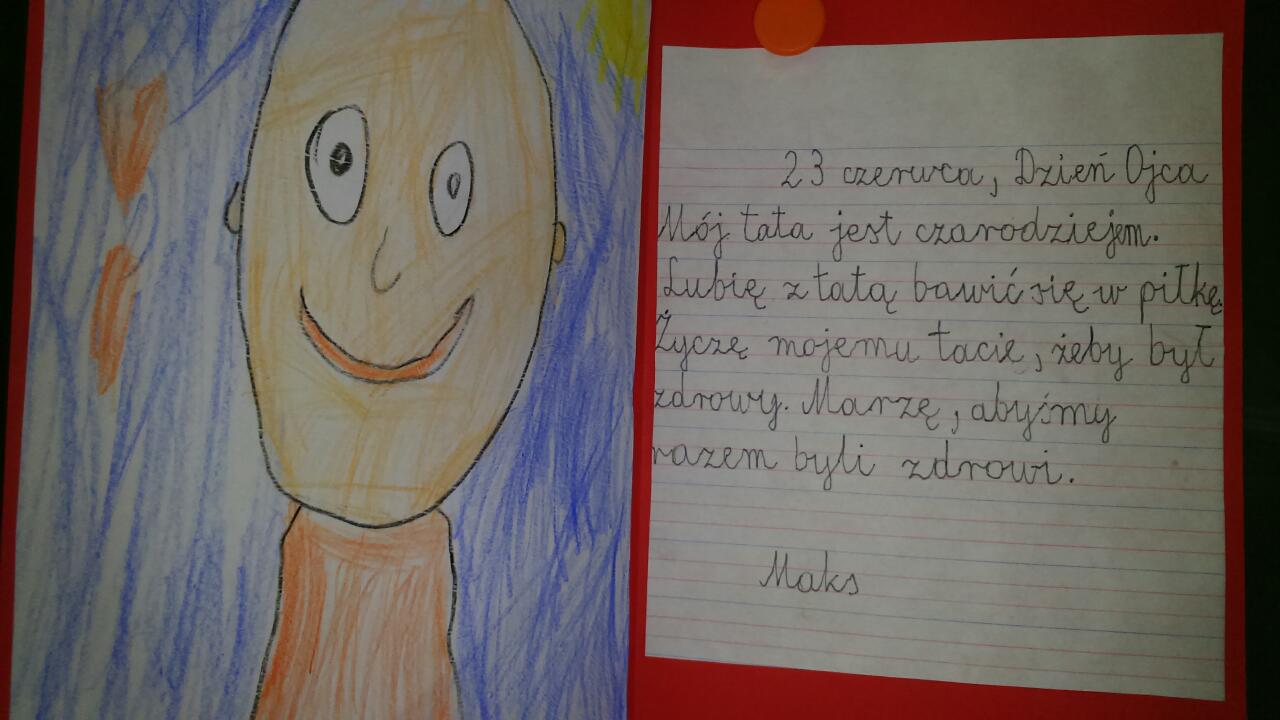 23 czerwca, Dzień Ojca
Mój tata jest czarodziejem.
Lubię z tatą bawić się w piłkę.
Życzę mojemu tacie, żeby był
zdrowy. Marzę, abyśmy
razem byli zdrowi.
Maks